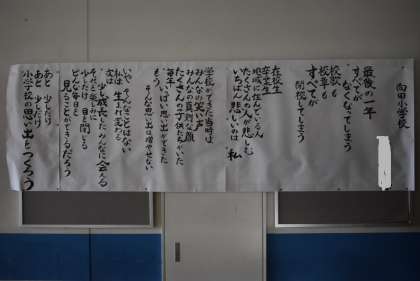 向田小学校
最後の一年
すべてが
なくなってしまう
校歌も
校章も
すべてが
閉校してしまう
在校生
卒業生
地域に住んでいる人
たくさんの人が悲しむ
いちばん悲しいのは 私
学校ができた当時は
みんなの笑い声
みんなの真剣な顔
たくさんの子供たちがいた
毎年
いっぱい思い出ができた
もう
そんな思い出は増やせない
いや そんなことはない
私は 生まれ変わる
次は
少しだけ 目を閉じる
それと同じに
少し成長した みんなに会える
どんな毎日を
見ることができるだろう
あと 少しだけ
あと 少しだけ
小学校の思い出をつくろう